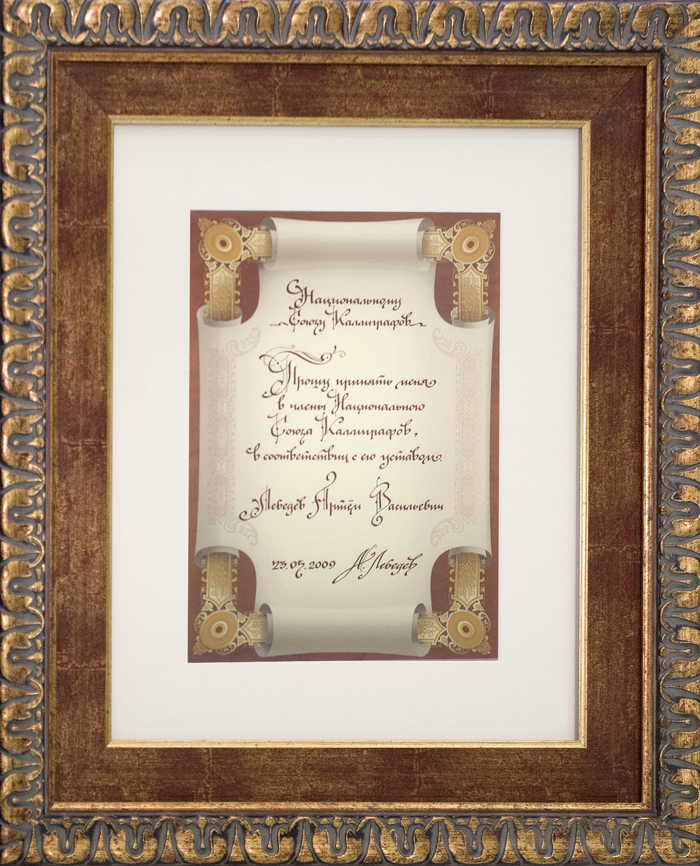 Национальному
Союзу Каллиграфов
Прошу принять меня
в члены Национального
Союза Каллиграфов,
в соответствии с его уставом.
Лебедев Артём Васильевич
23.07.2009 А. Лебедев